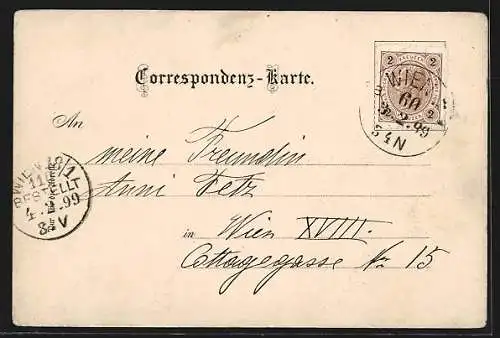 Correspondenz-Karte.
2 2
WIEN
60
2.99
4N
An meine Freundin
Anni Fetz
WIEN 18/1
BESTELLT
4. 99
8 V
in Wien XVIII.
Cottagegasse No 15